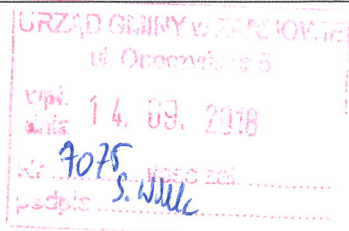 URZĄD GMINY w
ul. Opoczyńska 5
wpł.
dnia 14. 09. 2018
Nr 7075 ilość zał.
podpis S.